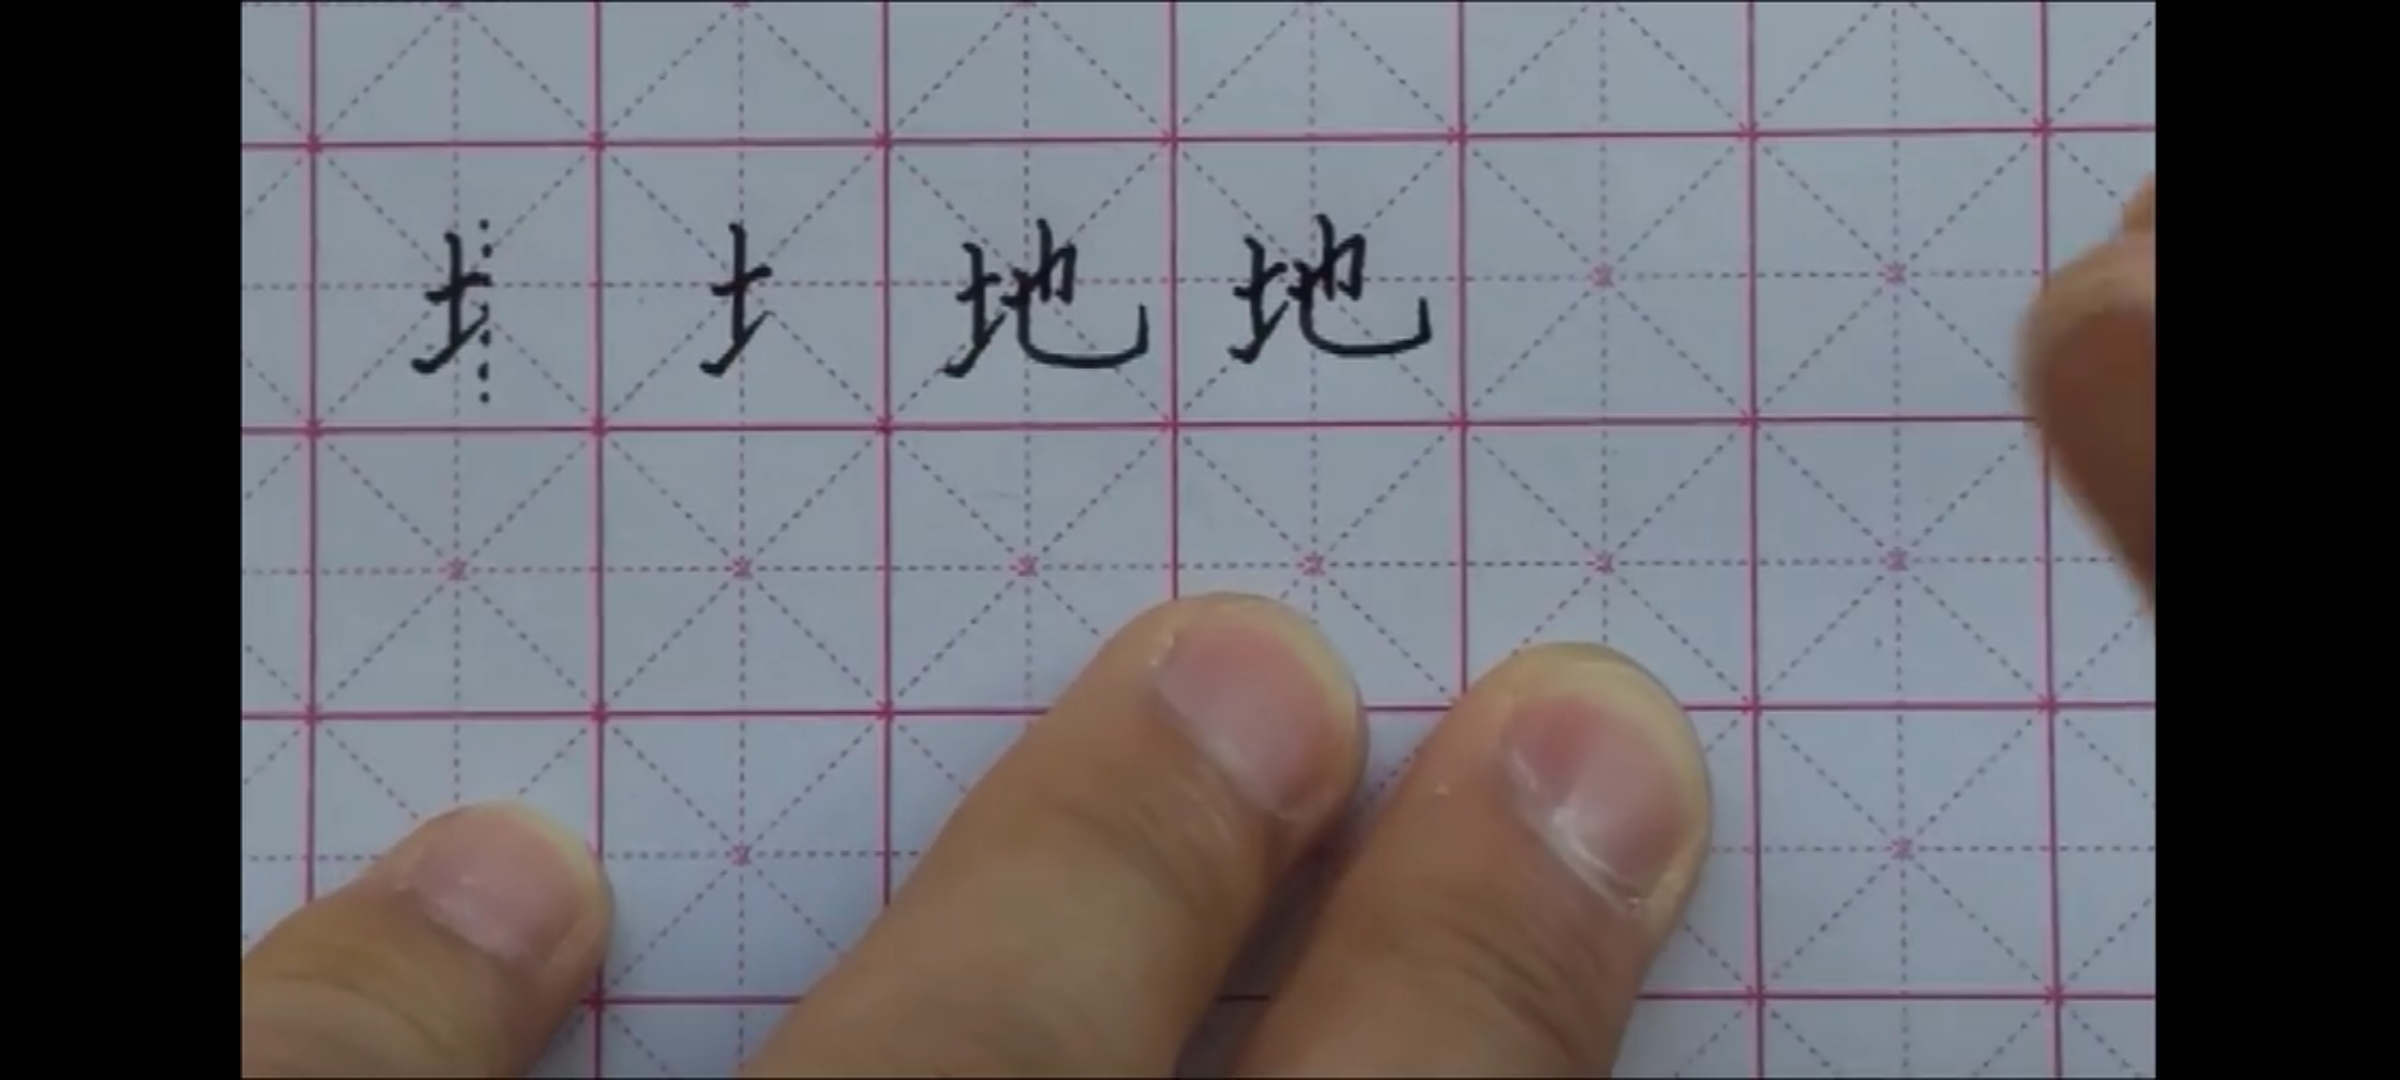 土 土 地 地